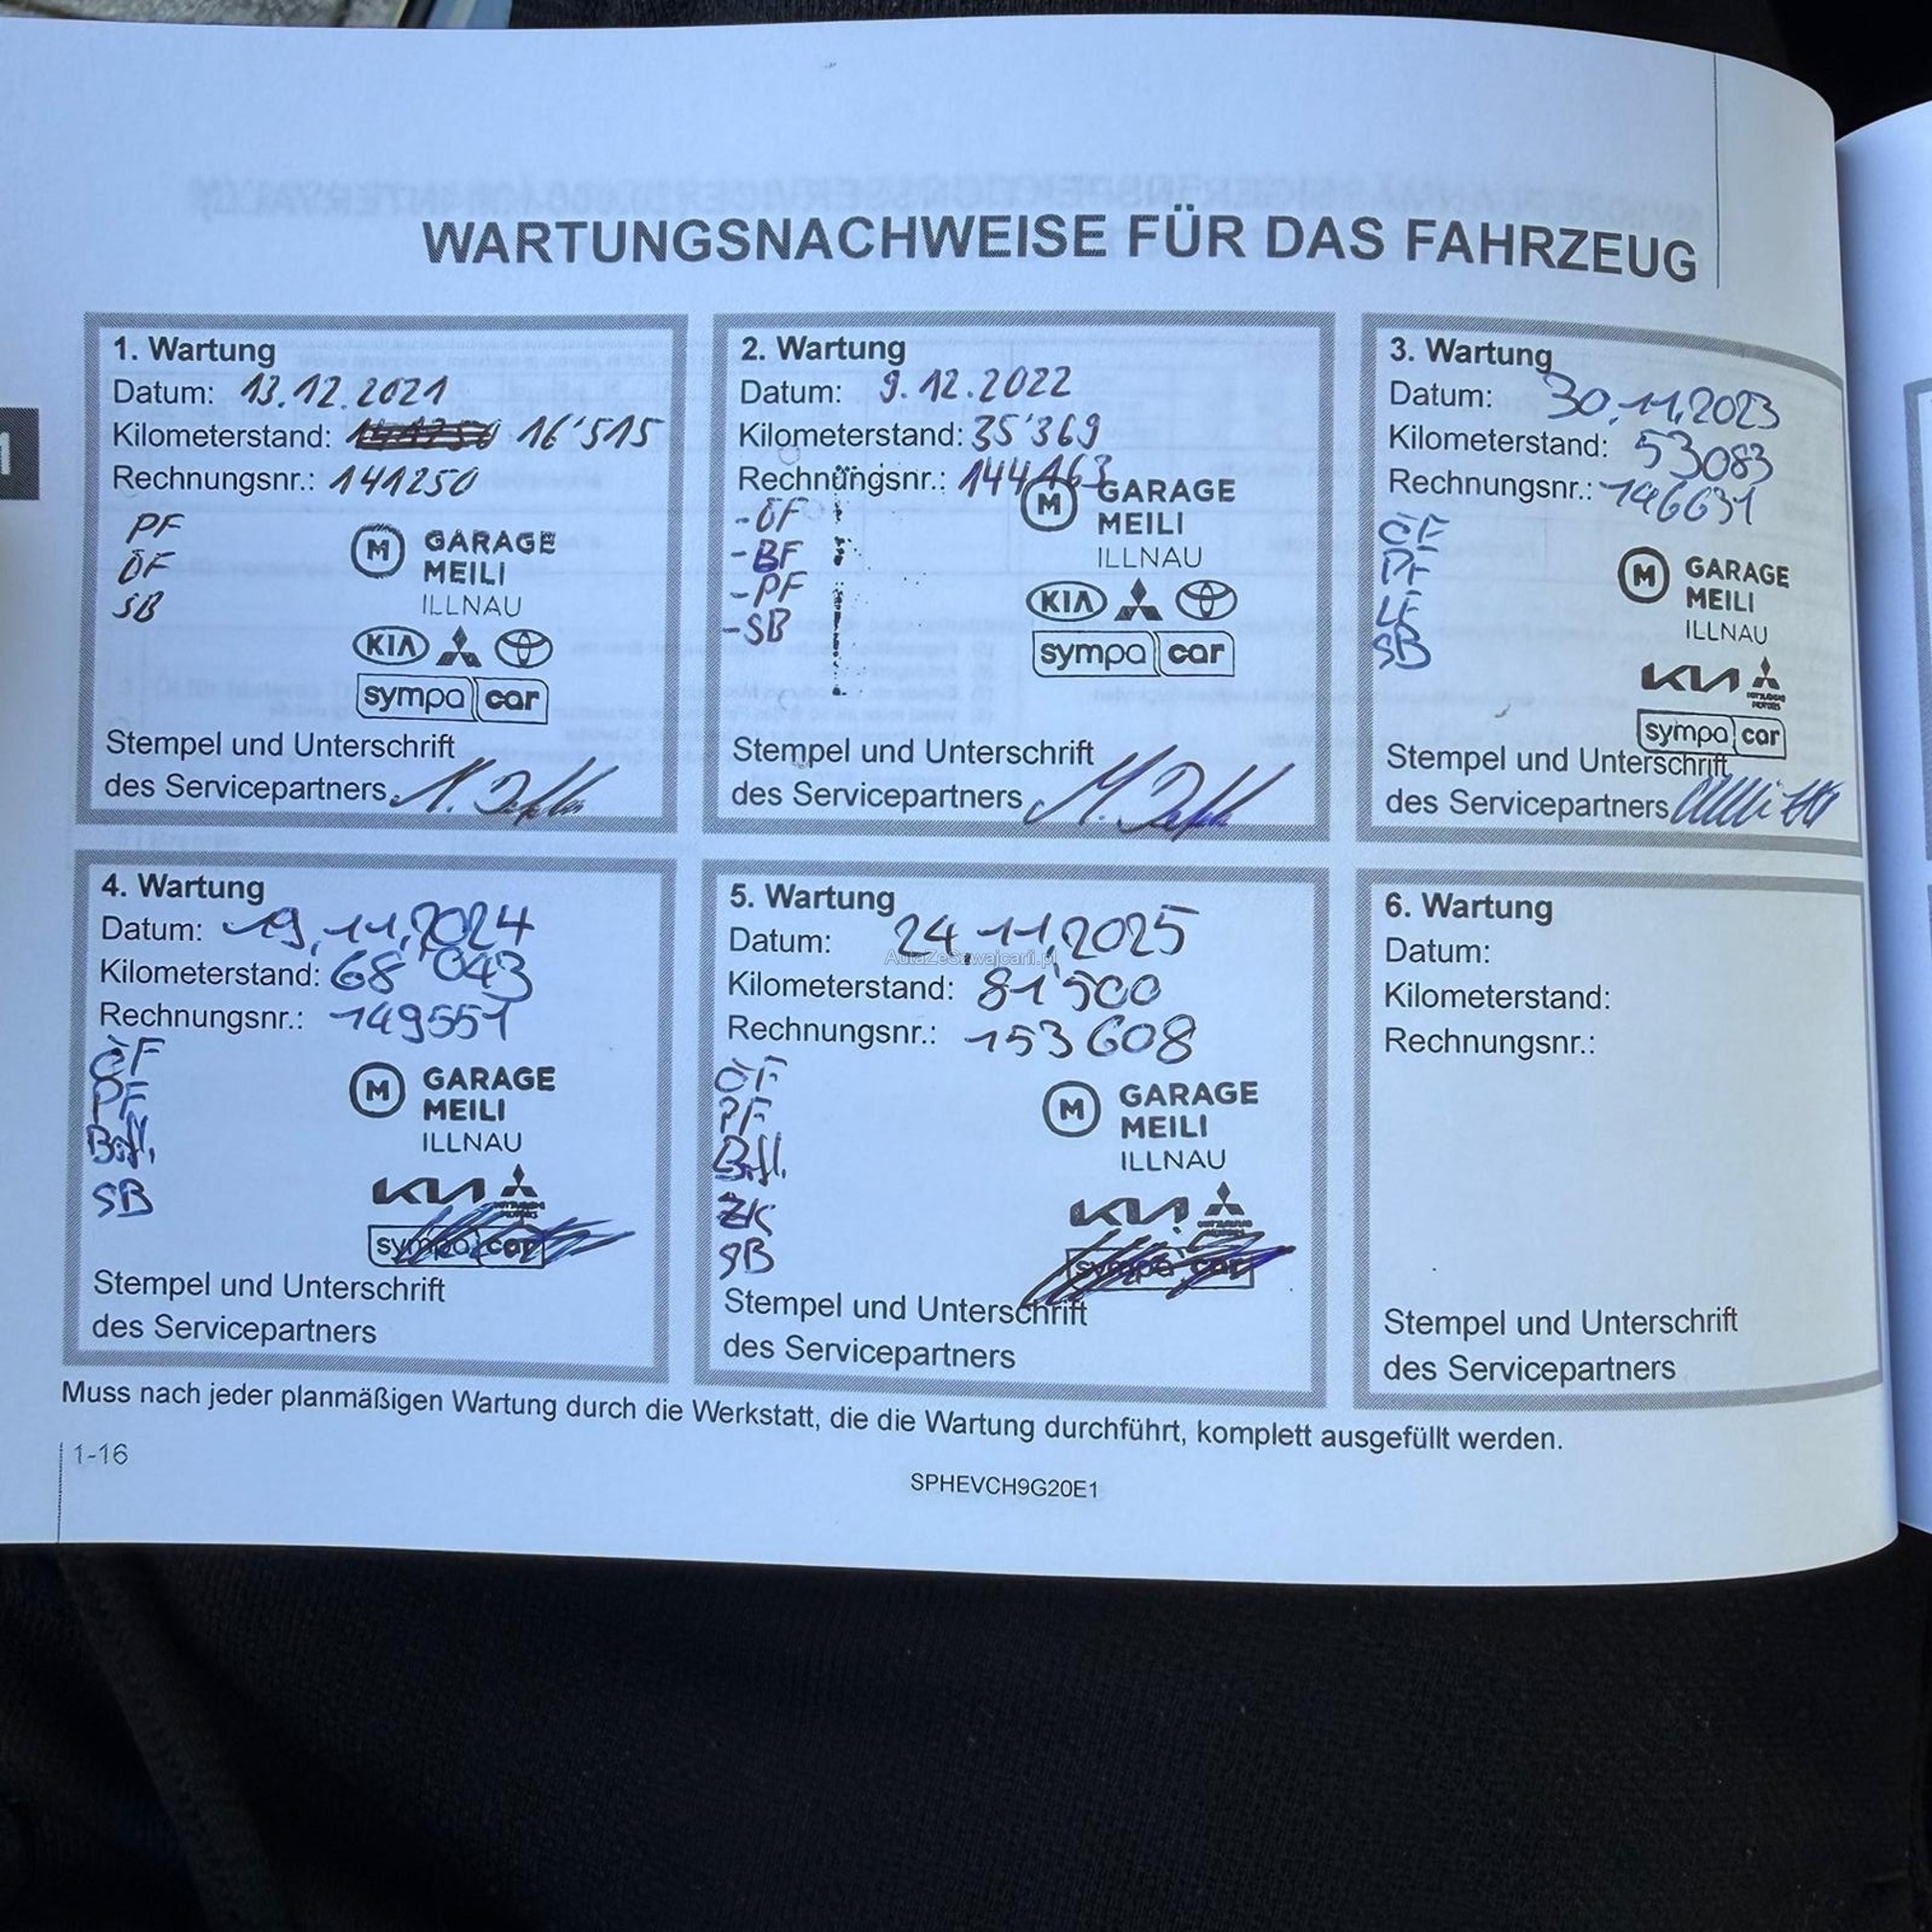 WARTUNGSNACHWEISE FÜR DAS FAHRZEUG
1
1. Wartung
Datum: 13.12.2021
Kilometerstand: 16'515
Rechnungsnr.: 141250
PF
ÖF
SB
M GARAGE
MEILI
ILLNAU
KIA
sympa car
Stempel und Unterschrift
des Servicepartners
2. Wartung
Datum: 9.12.2022
Kilometerstand: 35'369
Rechnungsnr.: 144463
-ÖF
-BF
-PF
-SB
M GARAGE
MEILI
ILLNAU
KIA
sympa car
Stempel und Unterschrift
des Servicepartners
3. Wartung
Datum: 30.11.2023
Kilometerstand: 53083
Rechnungsnr.: 146631
ÖF
PF
LF
SB
M GARAGE
MEILI
ILLNAU
KIA
MITSUBISHI
MOTORS
sympa car
Stempel und Unterschrift
des Servicepartners
4. Wartung
Datum: 19.11.2024
Kilometerstand: 68'043
Rechnungsnr.: 149551
ÖF
PF
SB
M GARAGE
MEILI
ILLNAU
KIA
sympa car
Stempel und Unterschrift
des Servicepartners
5. Wartung
Datum: 24.11.2025
AutaZeSzwajcarii.pl
Kilometerstand: 81'500
Rechnungsnr.: 153608
ÖF
PF
ZK
SB
M GARAGE
MEILI
ILLNAU
KIA
sympa car
Stempel und Unterschrift
des Servicepartners
6. Wartung
Datum:
Kilometerstand:
Rechnungsnr.:
Stempel und Unterschrift
des Servicepartners
Muss nach jeder planmäßigen Wartung durch die Werkstatt, die die Wartung durchführt, komplett ausgefüllt werden.
1-16
SPHEVCH9G20E1